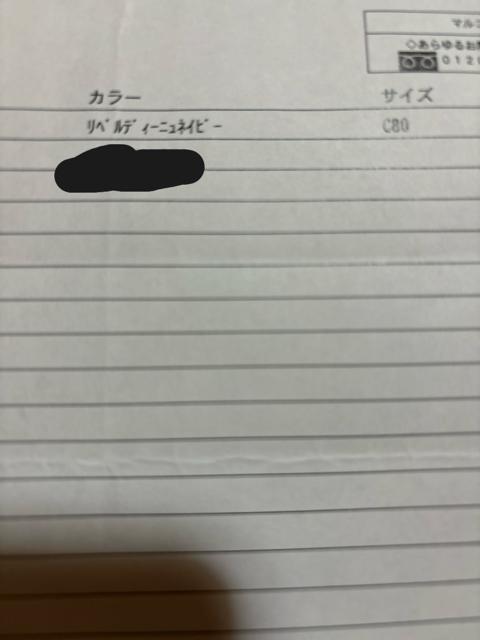 マルコ
◇あらゆるお
0120
カラー
サイズ
リベルディーニュネイビー
C80